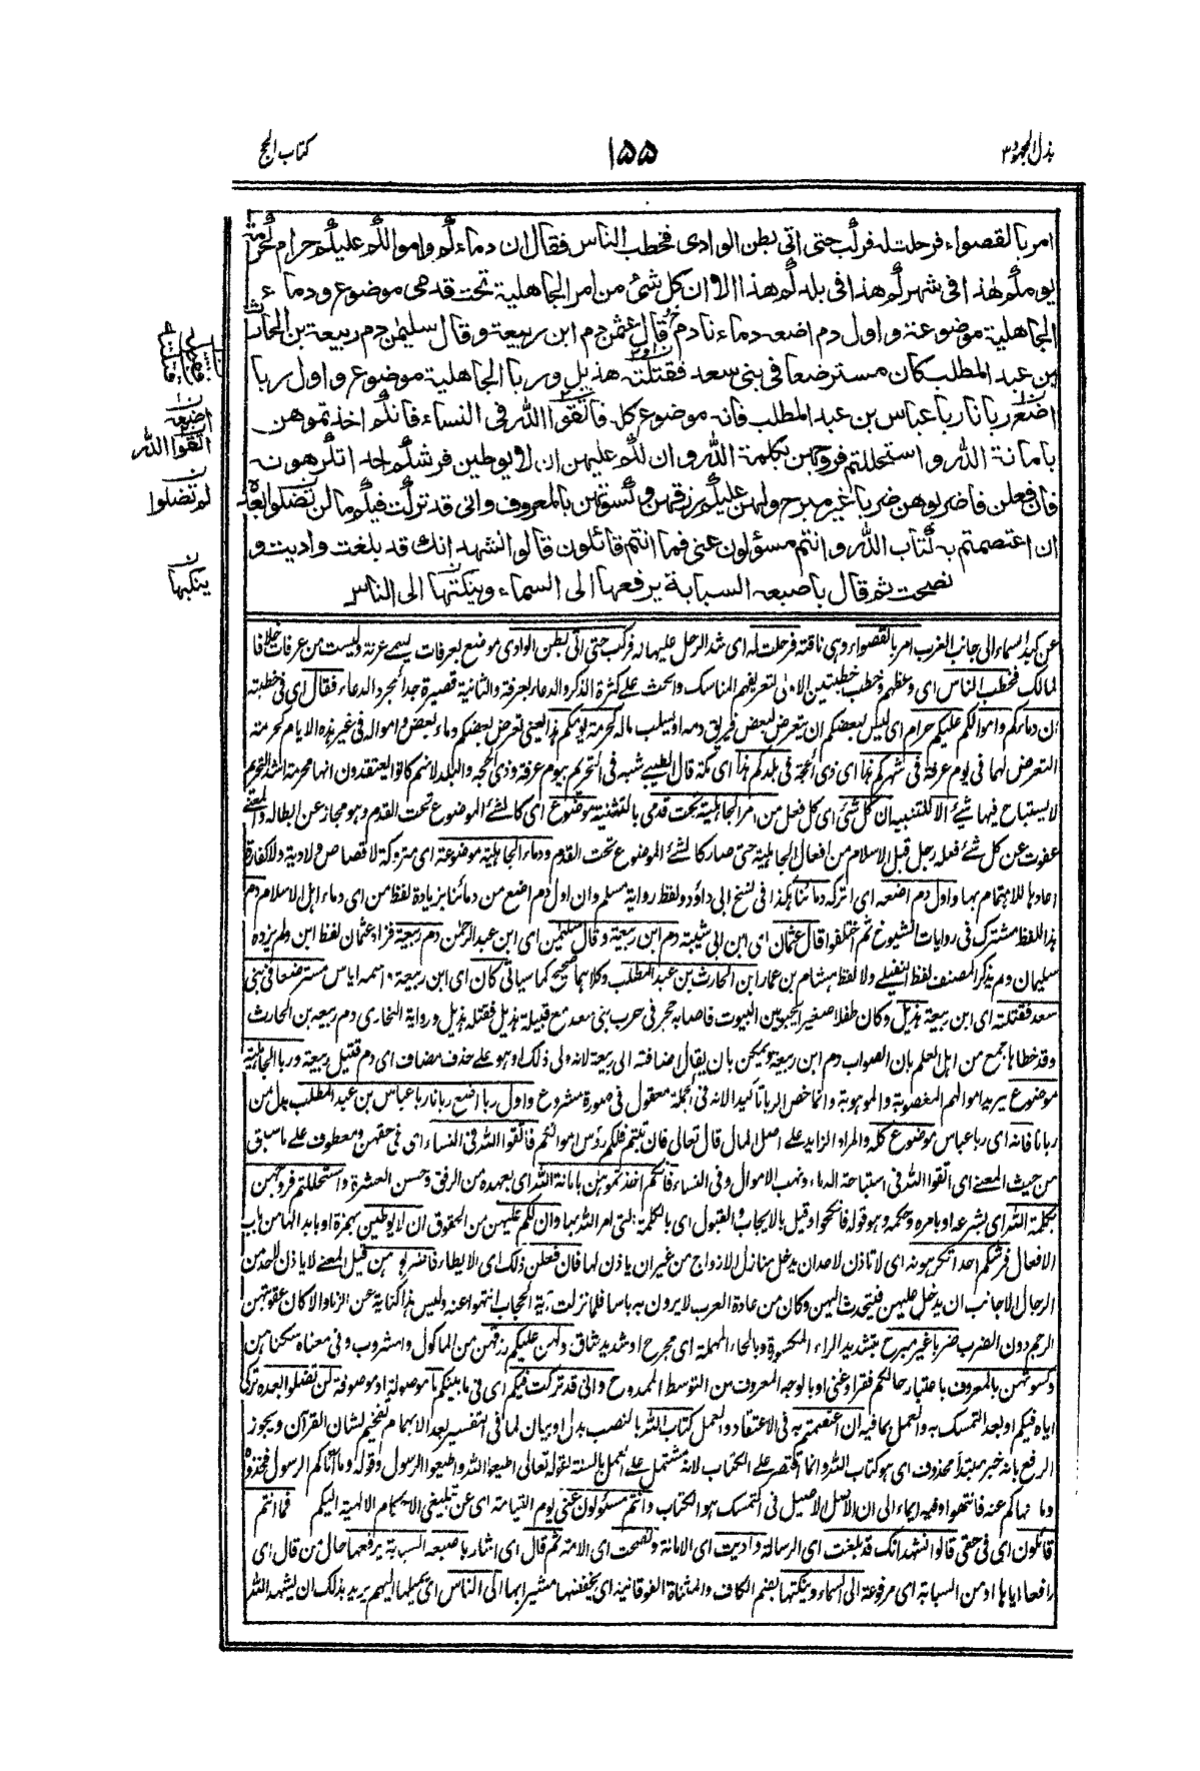 بذل المجهود ٣
١٥٥
كتاب الحج
امر بالقصواء فرحلت له فركب حتى اتى بطن الوادى فخطب الناس فقال ان دماءكم واموالكم عليكم حرام كحرمة
يومكم هذا فى شهركم هذا فى بلدكم هذا الا وان كل شئ من امر الجاهلية تحت قدمى موضوع ودماء
الجاهلية موضوعة واول دم اضعه دماءنا دم قال عثمن دم ابن ربيعة وقال سليمن دم ربيعة بن الحارث
بن عبد المطلب كان مسترضعا فى بنى سعد فقتلته هذيل وربا الجاهلية موضوع واول ربا
اضع ربانا ربا عباس بن عبد المطلب فانه موضوع كله فاتقوا الله فى النساء فانكم اخذتموهن
بامانة الله واستحللتم فروجهن بكلمة الله وان لكم عليهن ان لا يوطين فرشكم احدا تكرهونه
فان فعلن فاضربوهن ضربا غير مبرح ولهن عليكم رزقهن وكسوتهن بالمعروف وانى قد تركت فيكم ما لن تضلوا بعده
ان اعتصمتم به كتاب الله وانتم مسؤلون عنى فما انتم قائلون قالوا نشهد انك قد بلغت واديت و
نصحت ثم قال باصبعه السبابة يرفعها الى السماء وينكتها الى الناس
ن
اضعه
اتقوا الله
ن
لم تضلوا
ن
ينكبها
عن كبد السماء الى جانب الغرب امر بالقصواء وهى ناقته فرحلت له اى شد الرحل عليها له فركب حتى اتى بطن الوادى موضع بعرفات يسمى عرنة وليست من عرفات خلافا
لمالك فخطب الناس اى وعظهم وخطب خطبتين الاولى لتعريفهم المناسك والحث على كثرة الذكر والدعاء بعرفة والثانية قصيرة جدا لمجرد الدعاء فقال اى فى خطبته
ان دماءكم واموالكم عليكم حرام اى ليس لبعضكم ان يتعرض لبعض فيريق دمه او يسلب ماله كحرمة يومكم هذا يعنى تعرض بعضكم دماء بعض وامواله فى غير هذه الايام كحرمة
التعرض لها فى يوم عرفة فى شهركم هذا اى ذى الحجة فى بلدكم هذا اى مكة قال الطيبى شبه فى التحريم بيوم عرفة وذى الحجة والبلد لانهم كانوا يعتقدون انها محرمة اشد التحريم
لا يستباح فيها شئ الا للتنبيه ان كل شئ اى كل فعل من امر الجاهلية تحت قدمى بالتثنية موضوع اى كالشئ الموضوع تحت القدم وهو مجاز عن ابطاله والمعنى
عفوت عن كل شئ فعله رجل قبل الاسلام من افعال الجاهلية حتى صار كالشئ الموضوع تحت القدم ودماء الجاهلية موضوعة اى متروكة لا قصاص ولا دية ولا كفارة
اعادها للاهتمام بها واول دم اضعه اى اتركه دمائنا هكذا فى نسخ ابى داؤد ولفظ رواية مسلم وان اول دم اضع من دمائنا بزيادة لفظ من اى دماء اهل الاسلام دم
هذا اللفظ مشترك فى روايات الشيوخ ثم اختلفوا قال عثمان اى ابن ابى شيبة دم ابن ربيعة و قال سليمن اى ابن عبد الرحمن دم ربيعة فزاد عثمان لفظ ابن ولم يزده
سليمان ولم يذكر المصنف لفظ النفيلى ولا لفظ هشام بن عمار ابن الحارث بن عبد المطلب وكلاهما صحيح كما سياتى كان اى ابن ربيعة اسمه اياس مسترضعا فى بنى
سعد فقتلته اى ابن ربيعة هذيل وكان طفلا صغيرا يحبو بين البيوت فاصابه حجر فى حرب بنى سعد مع قبيلة هذيل فقتله هذيل ورواية البخارى دم ربيعه بن الحارث
وقد خطاها جمع من اهل العلم بان الصواب دم ابن ربيعة ويمكن بان يقال ضافته الى ربيعة لانه ولى ذلك او هو على حذف مضاف اى دم قتيل ربيعة وربا الجاهلية
موضوع يريد اموالهم المغصوبة والموهوبة وانما خص الربا تاكيدا لانه فى الجملة معقول فى صورة مشروع واول ربا اضع ربانا ربا عباس بن عبد المطلب بدل من
ربانا فانه اى ربا عباس موضوع كله والمراد الزايد على اصل المال قال تعالى فان تبتم فلكم رؤس اموالكم فاتقوا الله فى النساء اى فى حقهن ومعطوف على ما سبق
من حيث المعنى اى اتقوا الله فى استباحة الدماء ونهب الاموال وفى النساء فانكم اخذتموهن بامانة الله اى بعهده من الرفق وحسن العشرة واستحللتم فروجهن
بكلمة الله اى بشرعه او بامره وحكمه وهو قوله فانكحوا وقيل بالايجاب والقبول اى بالكلمة التى امر الله بها وان لكم عليهن من الحقوق ان لا يوطين بهمزة او بابدالها من باب
الافعال فرشكم احدا تكرهونه اى لا تاذن لاحد ان يدخل منازل الازواج من غير ان ياذن لها فان فعلن ذلك اى الايطاء فاضربوهن قيل المعنى لا ياذن لاحد من
الرجال الاجانب ان يدخل عليهن فيتحدث اليهن وكان من عادة العرب لا يرون به باسا فلما نزلت آية الحجاب انتهوا عنه وليس هذا كناية عن الزنا والا كان عقوبتهن
الرجم دون الضرب ضربا غير مبرح بتشديد الراء المكسورة وبالحاء المهملة اى مجرح او شديد شاق ولهن عليكم رزقهن من الماكول والمشروب وفى معناه سكناهن
وكسوتهن بالمعروف باعتبار حالكم فقرا وغنى او بالوجه المعروف من التوسط الممدوح وانى قد تركت فيكم اى فى ما بينكم ما موصولة او موصوفة لن تضلوا بعده تركى
اياه فيكم او بعد التمسك به والعمل بما فيه ان اعتصمتم به فى الاعتقاد والعمل كتاب الله بالنصب بدل او بيان لما فى التفسير بعد الابهام تفخيم لشان القرآن ويجوز
الرفع بانه خبر مبتدأ محذوف اى هو كتاب الله وانما اقتصر على الكتاب لانه مشتمل على العمل بالسنة لقوله تعالى اطيعوا الله واطيعوا الرسول وقوله وما آتاكم الرسول فخذوه
وما نهاكم عنه فانتهوا وفيه ايماء الى ان الاصل الاصيل فى التمسك هو الكتاب وانتم مسئولون عنى يوم القيامة اى عن تبليغى الاحكام الالهية اليكم فما انتم
قائلون اى فى حقى قالوا نشهد انك قد بلغت اى الرسالة واديت اى الامانة ونصحت اى الامة ثم قال اى اشار باصبعه السبابة يرفعها حال من قال اى
رافعا اياها او من السبابة اى مرفوعة الى السماء وينكتها بضم الكاف والمثناة الفوقانية اى يخفضها مشيرا بها الى الناس اى يميلها اليهم يريد بذلك ان يشهد الله